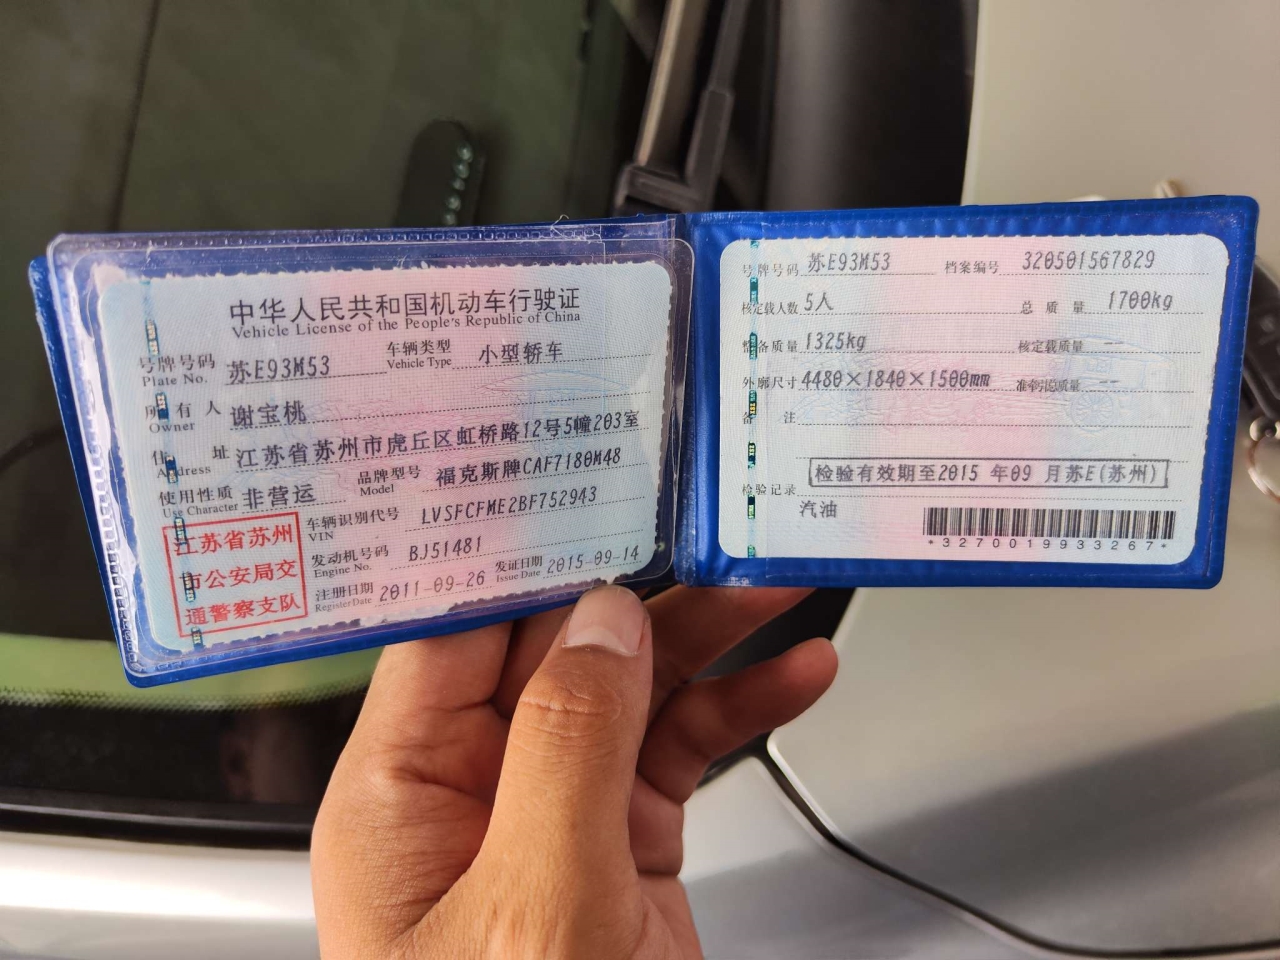 中华人民共和国机动车行驶证
Vehicle License of the People's Republic of China
号牌号码 苏E93M53 车辆类型 小型轿车
Plate No. Vehicle Type
所有人 谢宝桃
Owner
住址 江苏省苏州市虎丘区虹桥路12号5幢203室
Address
使用性质 非营运 品牌型号 福克斯牌CAF7180M48
Use Character Model
车辆识别代号 LVSFCFME2BF752943
VIN
发动机号码 BJ51481
Engine No.
注册日期 2011-09-26 发证日期 2015-09-14
Register Date Issue Date
江苏省苏州
市公安局交
通警察支队
号牌号码 苏E93M53 档案编号 320501567829
核定载人数 5人 总质量 1700kg
整备质量 1325kg 核定载质量 --
外廓尺寸 4480×1840×1500mm 准牵引总质量 --
备注
检验有效期至2015 年09 月苏E(苏州)
检验记录
汽油
*3270019933267*